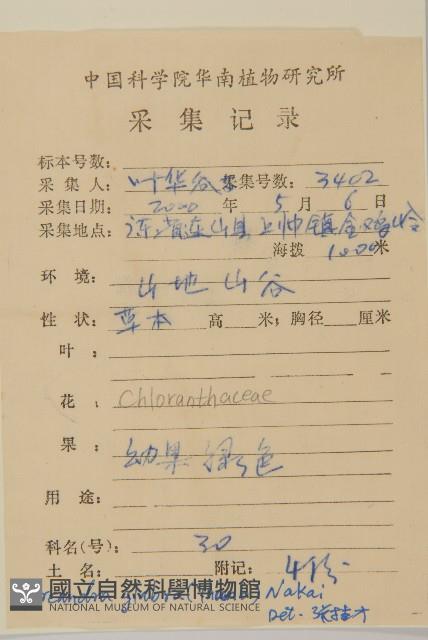 中国科学院华南植物研究所
采集记录
标本号数:
采集人: 叶华谷等 采集号数: 3402
采集日期: 2000 年 5 月 6 日
采集地点: 连山县上帅镇金鸡岭
海拨 1000米
环境: 山地山谷
性状: 草本 高 米; 胸径 厘米
叶:
花: Chloranthaceae
果: 幼果绿色
用途:
科名(号): 30
土名: 附记: 4份
Nakai
國立自然科學博物館
NATIONAL MUSEUM OF NATURAL SCIENCE
Det.